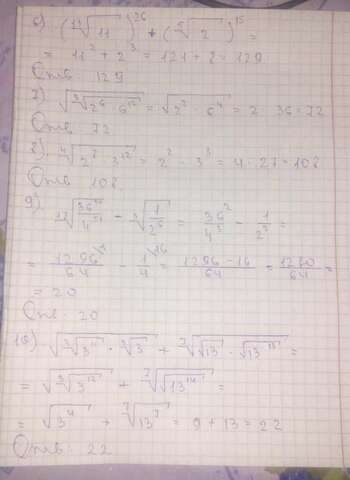 6) (¹³√11)²⁶ + (⁵√2)¹⁵ =
= 11² + 2³ = 121 + 8 = 129
Отв 129
7) √(³√(2⁶ · 6¹²)) = √(2² · 6⁴) = 2 · 36 = 72
Отв 72
8) ⁴√(2⁸ · 3¹²) = 2² · 3³ = 4 · 27 = 108
Отв 108
= 1296/64 - 1/4 = 1296 - 16/64 = 1280/64 =
= 20
От. 20
10) √(³√3¹¹ · ³√3) + ⁷√(√13 · √13¹³) =
= √(³√3¹²) + ⁷√(√13¹⁴) =
= √3⁴ + ⁷√13⁷ = 9 + 13 = 22
Отв. 22